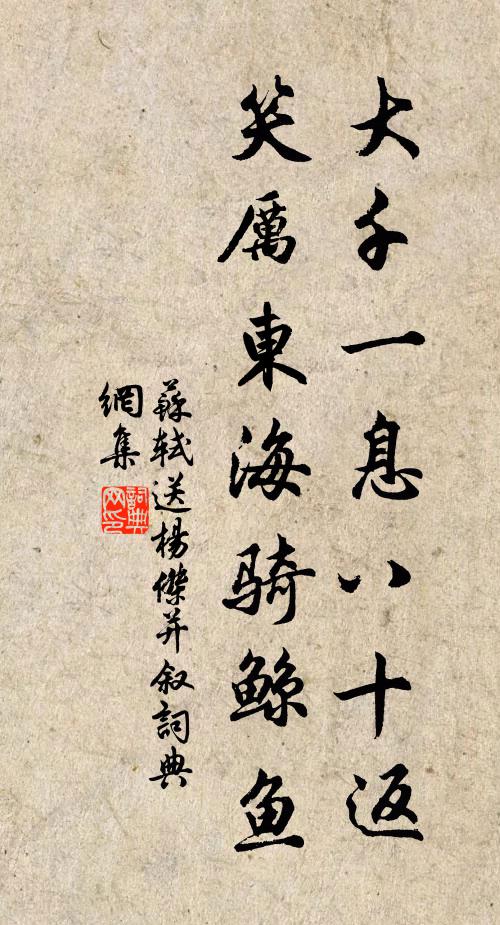 大千一息八十返
笑厲東海騎鯨魚
蘇軾送楊傑并叙詞典
網集
詞典
网印